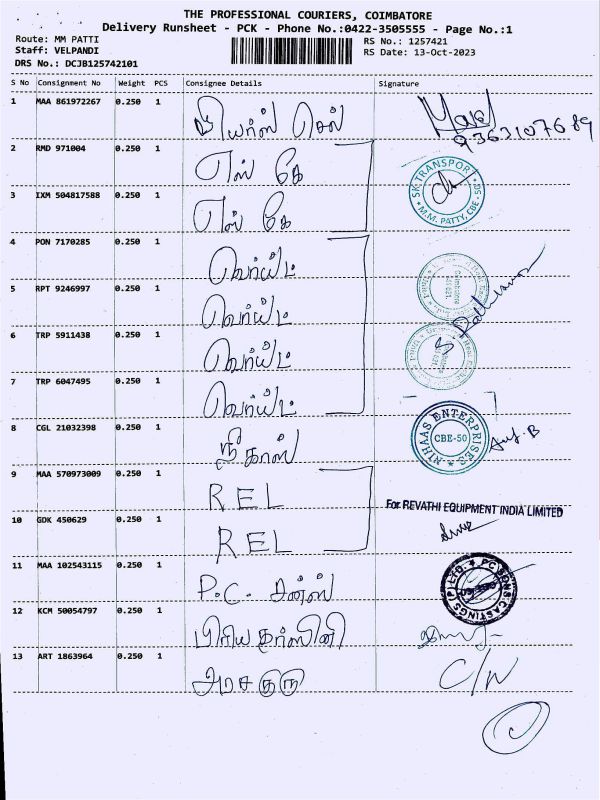 THE PROFESSIONAL COURIERS, COIMBATORE
Delivery Runsheet - PCK - Phone No.:0422-3505555 - Page No.:1
Route: MM PATTI
Staff: VELPANDI
DRS No.: DCJB125742101
RS No.: 1257421
RS Date: 13-Oct-2023
S No Consignment No Weight PCS Consignee Details Signature
1 MAA 861972267 0.250 1 செல் 9363107689
2 RMD 971004 0.250 1 எஸ் கே
SK TRANSPORT M.M. PATTY, CBE
3 IXM 504817588 0.250 1 எஸ் கே
4 PON 7170285 0.250 1
5 RPT 9246997 0.250 1
6 TRP 5911438 0.250 1
7 TRP 6047495 0.250 1
8 CGL 21032398 0.250 1 நிகாஸ்
NIHAAS ENTERPRISES CBE-50
9 MAA 570973009 0.250 1 REL
For REVATHI EQUIPMENT INDIA LIMITED
10 GDK 450629 0.250 1 REL
11 MAA 102543115 0.250 1 P.C. சன்ஸ்
PC SONS CASTINGS (P) LTD.
12 KCM 50054797 0.250 1 பிரியதர்ஸினி
13 ART 1863964 0.250 1 அரசகுரு C/N